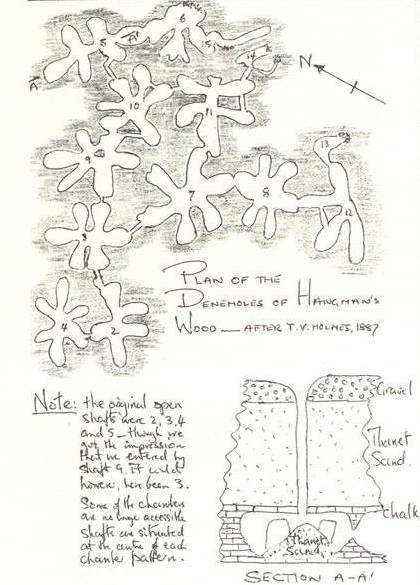 A
5
A'
6
15
14
N
10
11
9
13
7
8
12
3
4
2
PLAN OF THE
DENEHOLES OF HANGMAN'S
WOOD — AFTER T.V. HOLMES, 1887
Note: the original open
shafts were 2, 3, 4
and 5 — though we
got the impression
that we entered by
shaft 9. It could
however, have been 3.
Some of the chambers
are no longer accessible
Shafts are situated
at the centre of each
chamber pattern.
Gravel
Thanet
Sand
Chalk
Thanet
Sand
SECTION A-A'